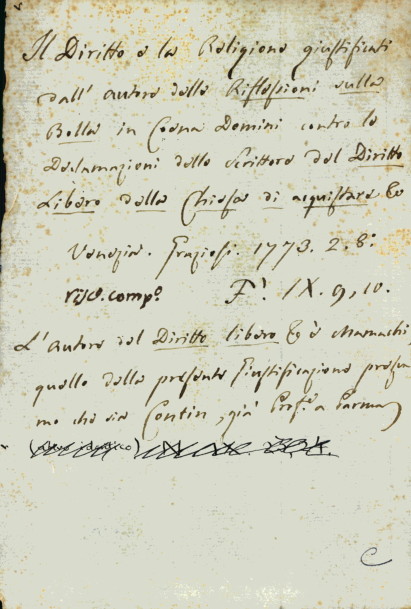 Il Diritto e la Religione giustificati
dall' autore delle Riflessioni sulla
Bolla in Coena Domini contro le
Declamazioni dello Scrittore del Diritto
Libero della Chiesa di acquistare &c
Venezia. Graziosi. 1773. 2. 8.
F. IX. 9, 10.
L'autore del Diritto libero &c è Mamachi,
quello della presente Giustificazione presu-
mo che sia Contin, già Prof.e a Parma
C